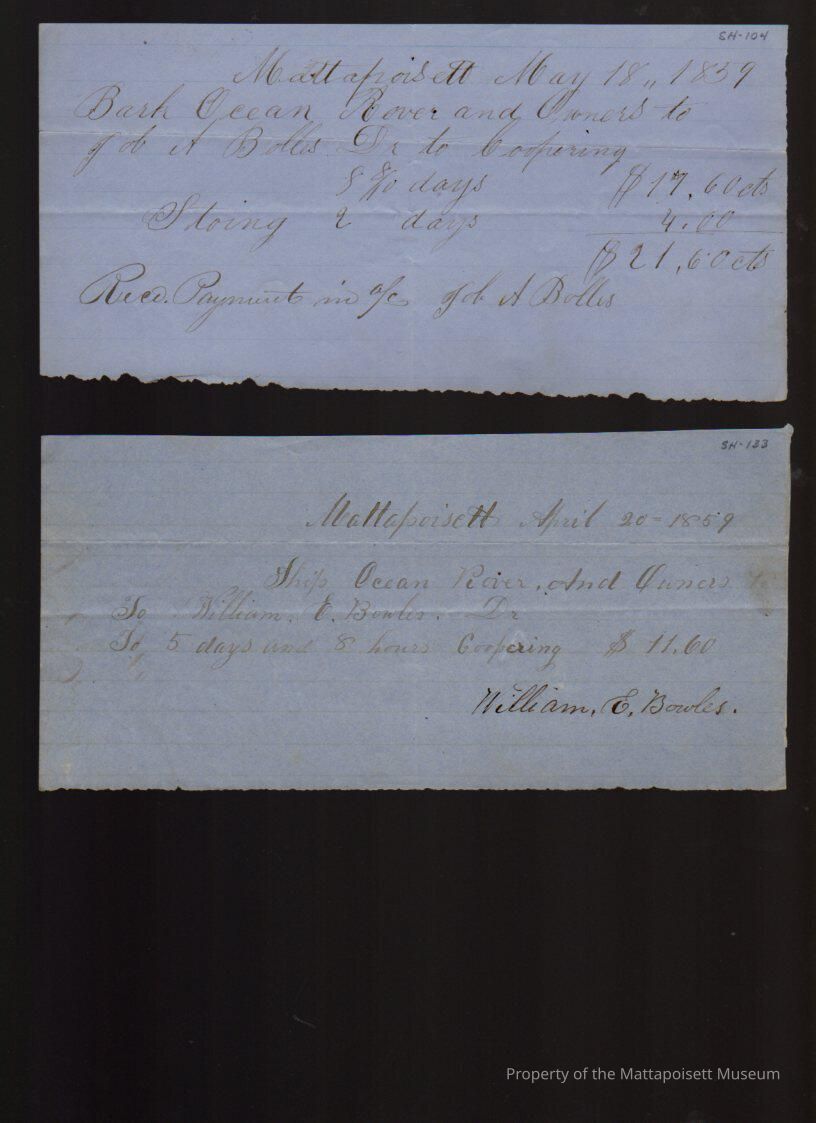 SH-104
Mattapoisett May 18,, 1859
Bark Ocean Rover and Owners to
Job A Bolles Dr to Coopering
8 8/10 days $17.60 cts
Stoing 2 days 4.00
$21.60 cts
Recd. Payment in a/c Job A Bolles
SH-133
Mattapoisett April 20=1859
Ship Ocean Rover, And Owners
To William, E. Bowles. Dr
To, 5 days and 8 hours Coopering $ 11.60
William, E, Bowles.
Property of the Mattapoisett Museum